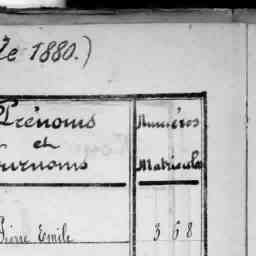 de 1880.)
Prénoms Numéros
et
surnoms Matricules
Pierre Emile 368